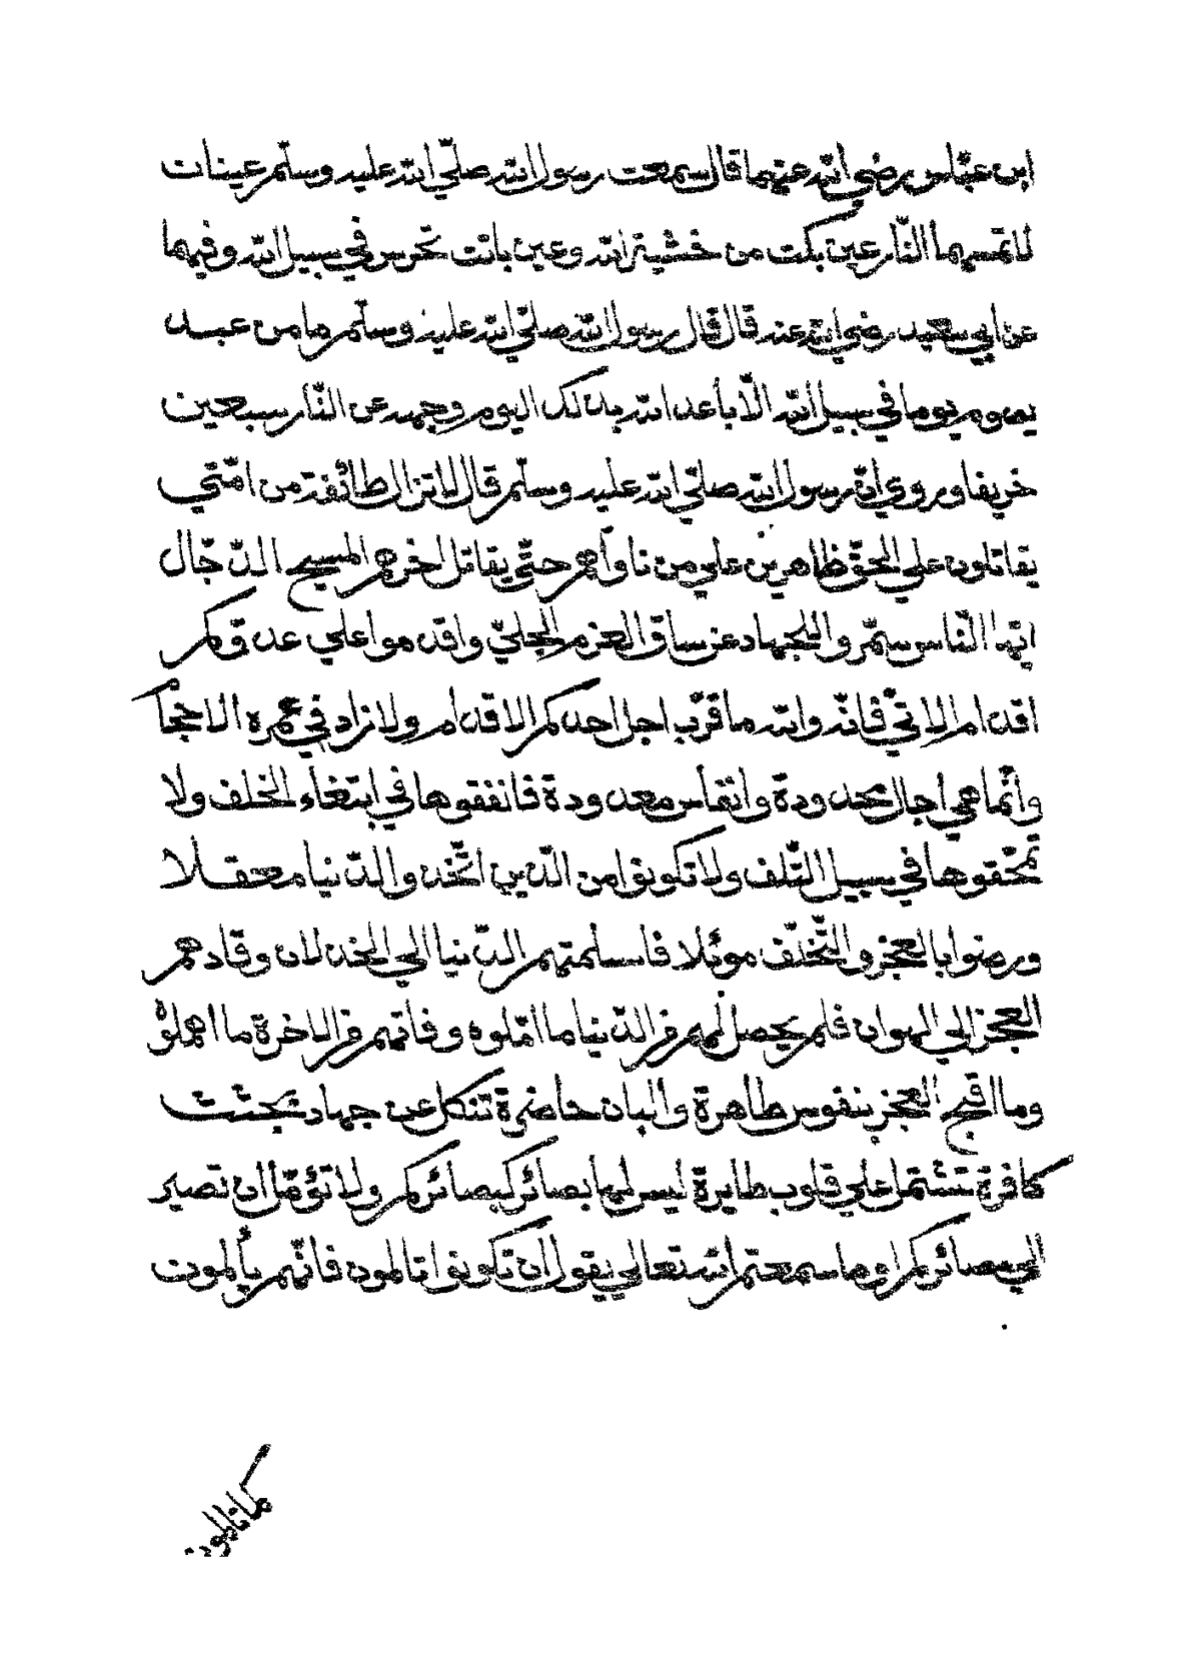 ابن عبّاس رضي الله عنهما قال سمعت رسول الله صلّي الله عليه وسلّم عينان
لا تمسهما النّار عين بكت من خشية الله وعين باتت تحرس في سبيل الله وفيهما
عن ابي سعيد رضي الله عنه قال قال رسول الله صلّي الله عليه وسلّم ما من عبد
يصوم يوما في سبيل الله الّا باعد الله بذلك اليوم وجهه عن النّار سبعين
خريفا وروي انّ رسول الله صلّي الله عليه وسلّم قال لا تزال طائفة من امّتي
يقاتلون علي الحقّ ظاهرين علي من ناوأهم حتّي يقاتل اخرهم المسيح الدّجّال
ايّها النّاس شمّروا للجهاد عن ساق العزم الجليّ واقدموا علي عدوّكم
اقدام الاتيّ فانّه والله ما قرّب اجل احدكم الاقدام ولا زاد في عمره الاحجام
وانّما هي اجال محدودة وانفاس معدودة فانفقوها في ابتغاء الخلف ولا
تمحّقوها في سبيل التّلف ولا تكونوا من الّذين اتّخذوا الدّنيا معقلا
ورضوا بالعجز والتّخلّف موئلا فاسلمتهم الدّنيا الي الخذلان وقادهم
العجز الي الهوان فلم يحصل لهم من الدّنيا ما امّلوه وفاتهم من الاخرة ما اهملوه
وما اقبح العجز بنفوس طاهرة والبان حاضرة تنكل عن جهاد بجثث
كافرة تشتمل علي قلوب طايرة ليس لها بصائر كبصائركم ولا تؤمّل ان تصير
الي مصائركم اوما سمعتم الله تعالي يقول ان تكونوا تالمون فانّهم يألمون
كما تالمون